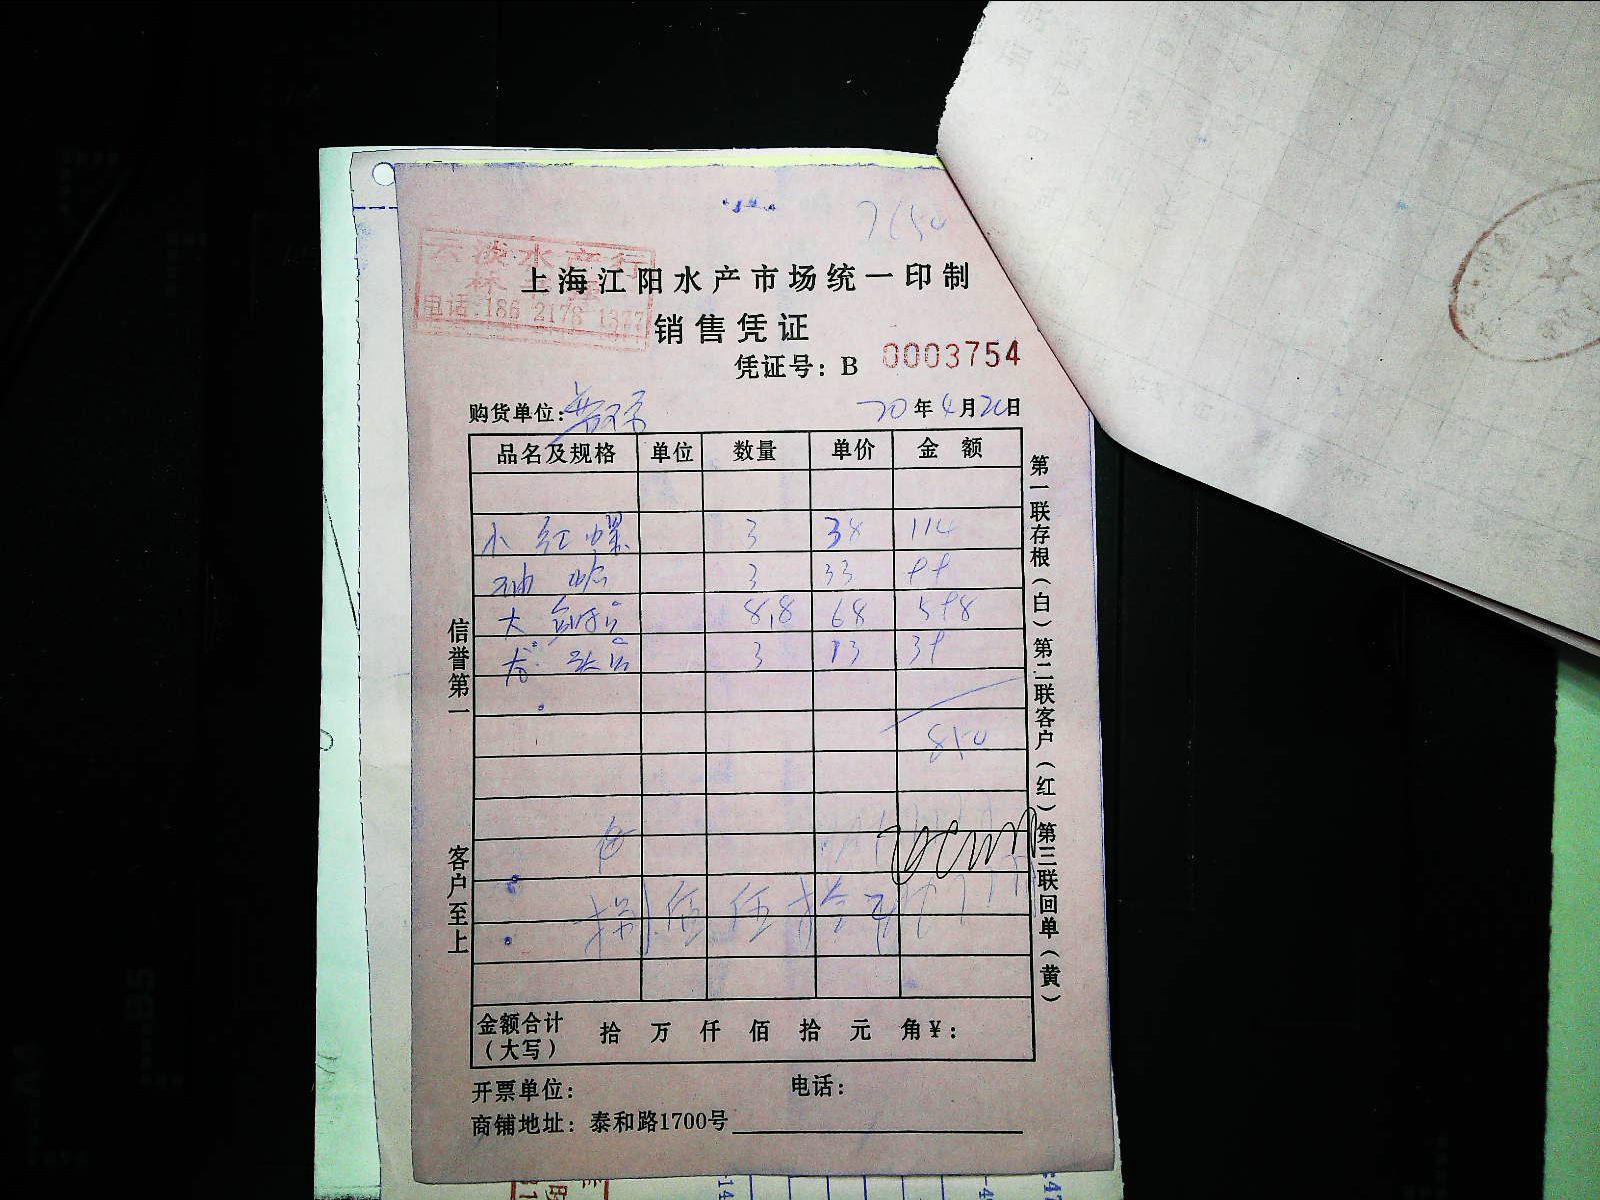 云淡水产行
电话:186 2178 1377
上海江阳水产市场统一印制
销售凭证
凭证号：B 0003754
购货单位：
20年4月20日
品名及规格 单位 数量 单价 金额
小红螺 3 38 114
3 33 99
大 8.8 68 598
3 13 39
850
捌佰伍拾元
金额合计（大写） 拾 万 仟 佰 拾 元 角¥：
开票单位： 电话：
商铺地址：泰和路1700号
信誉第一 客户至上
第一联存根（白）第二联客户（红）第三联回单（黄）